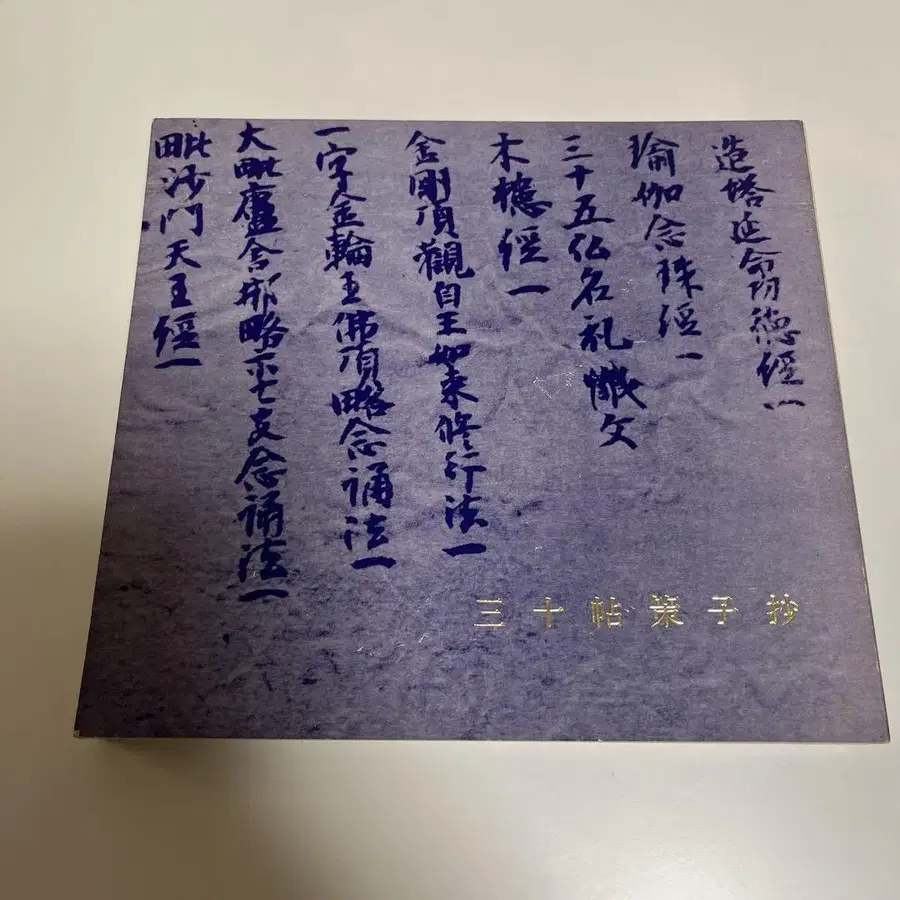 造塔延命功徳経一
瑜伽念珠経一
三十五仏名礼懺文
木槵経一
金剛頂觀自王如来修行法一
一字金輪王佛頂略念誦法一
大毗盧舍那略示七支念誦法一
毗沙門天王経一
三十帖策子抄